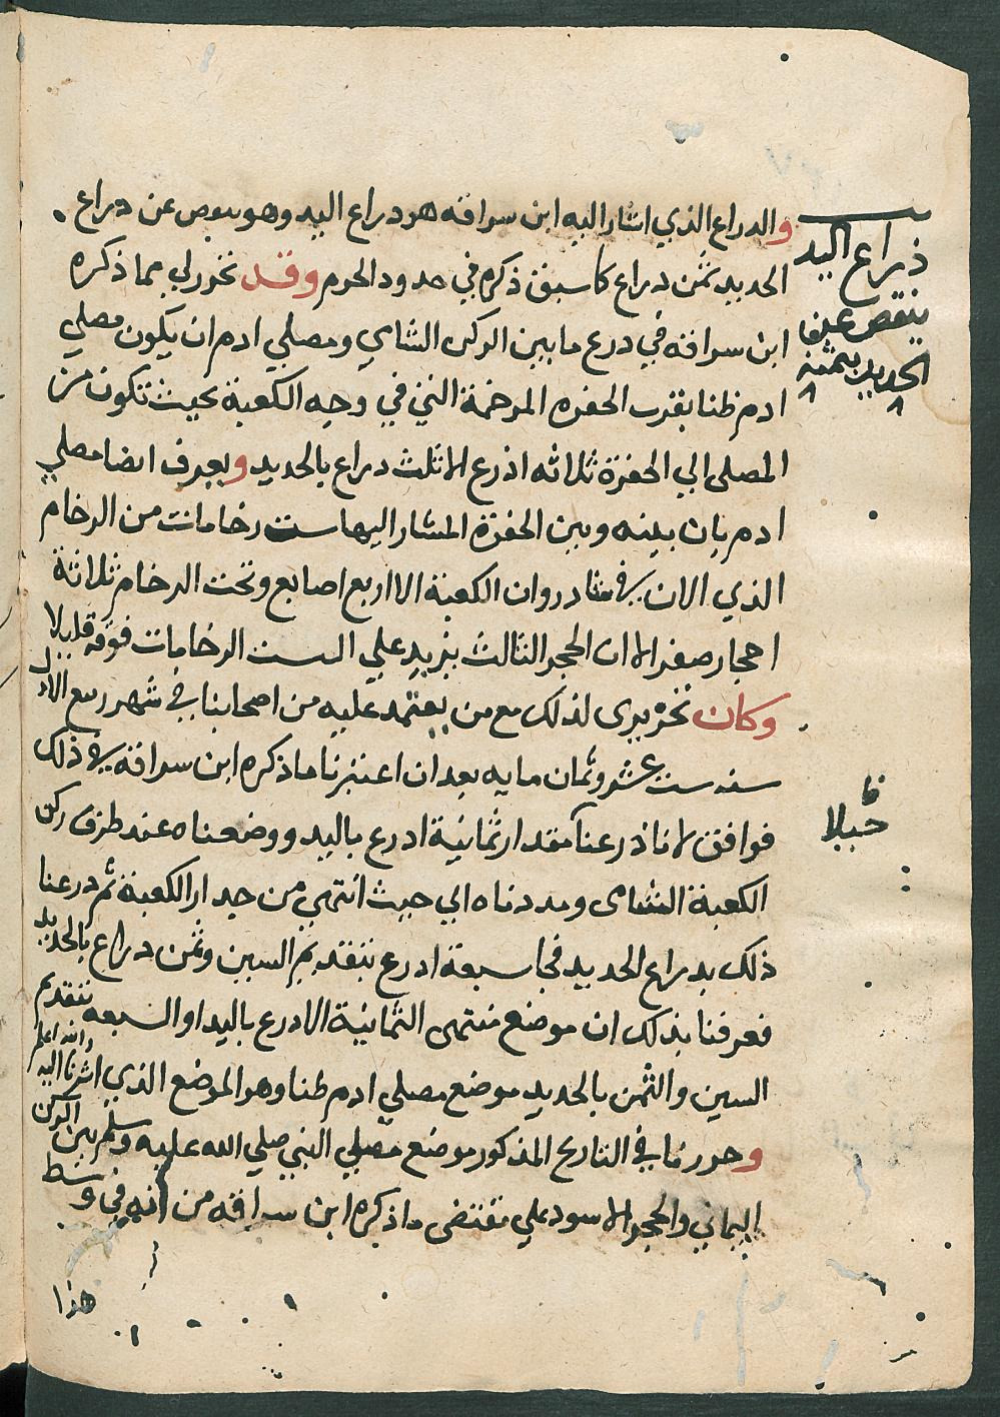 والدراع الذي اشار اليه ابن سراقه هو دراع اليد وهو ينقص عن دراع
الحديد ثمن دراع كما سبق ذكره في حدود الحرم وقد تحرر لي مما ذكره
ابن سراقه في درع ما بين الركن الشامي ومصلي ادم ان يكون مصلي
ادم ظنا بقرب الحفره المرخمة التي في وجه الكعبة بحيث تكون من
المصلى الي الحفرة ثلاثه اذرع الا ثلث دراع بالحديد ويعرف ايضا مصلي
ادم بان بينه وبين الحفرة المشار اليها ست رخامات من الرخام
الذي الان في شادروان الكعبة الا اربع اصابع وتحت الرخام ثلاثة
احجار صفر الا ان الحجر الثالث يزيد علي الست الرخامات فوقه قليلا
وكان تحريري لذلك مع من يعتمد عليه من اصحابنا في شهر ربيع الاول
سنه ست عشر وثمان مايه بعد ان اعتبرنا ما ذكره ابن سراقة في ذلك
فوافق لانا ذرعنا مقدار ثمانية ادرع باليد ووضعناه عند طرف ركن
الكعبة الشامى ومددناه الي حيث انتهي من جدار الكعبة ثم درعنا
ذلك بدراع الحديد فجا سبعة ادرع بتقديم السين وثمن دراع بالحديد
فعرفنا بذلك ان موضع منتهى الثمانية الادرع باليد او السبعه بتقديم
السين والثمن بالحديد موضع مصلي ادم ظنا وهو الموضع الذي اشرنا اليه والله اعلم
وحررنا في التاريخ المذكور موضع مصلي النبي صلي الله عليه وسلم بين الركن
اليماني والحجر الاسود علي مقتضى ما ذكره ابن سراقه من انه في وسط
هذا
ذراع اليد
ينقص عن
الحديد بثمنه